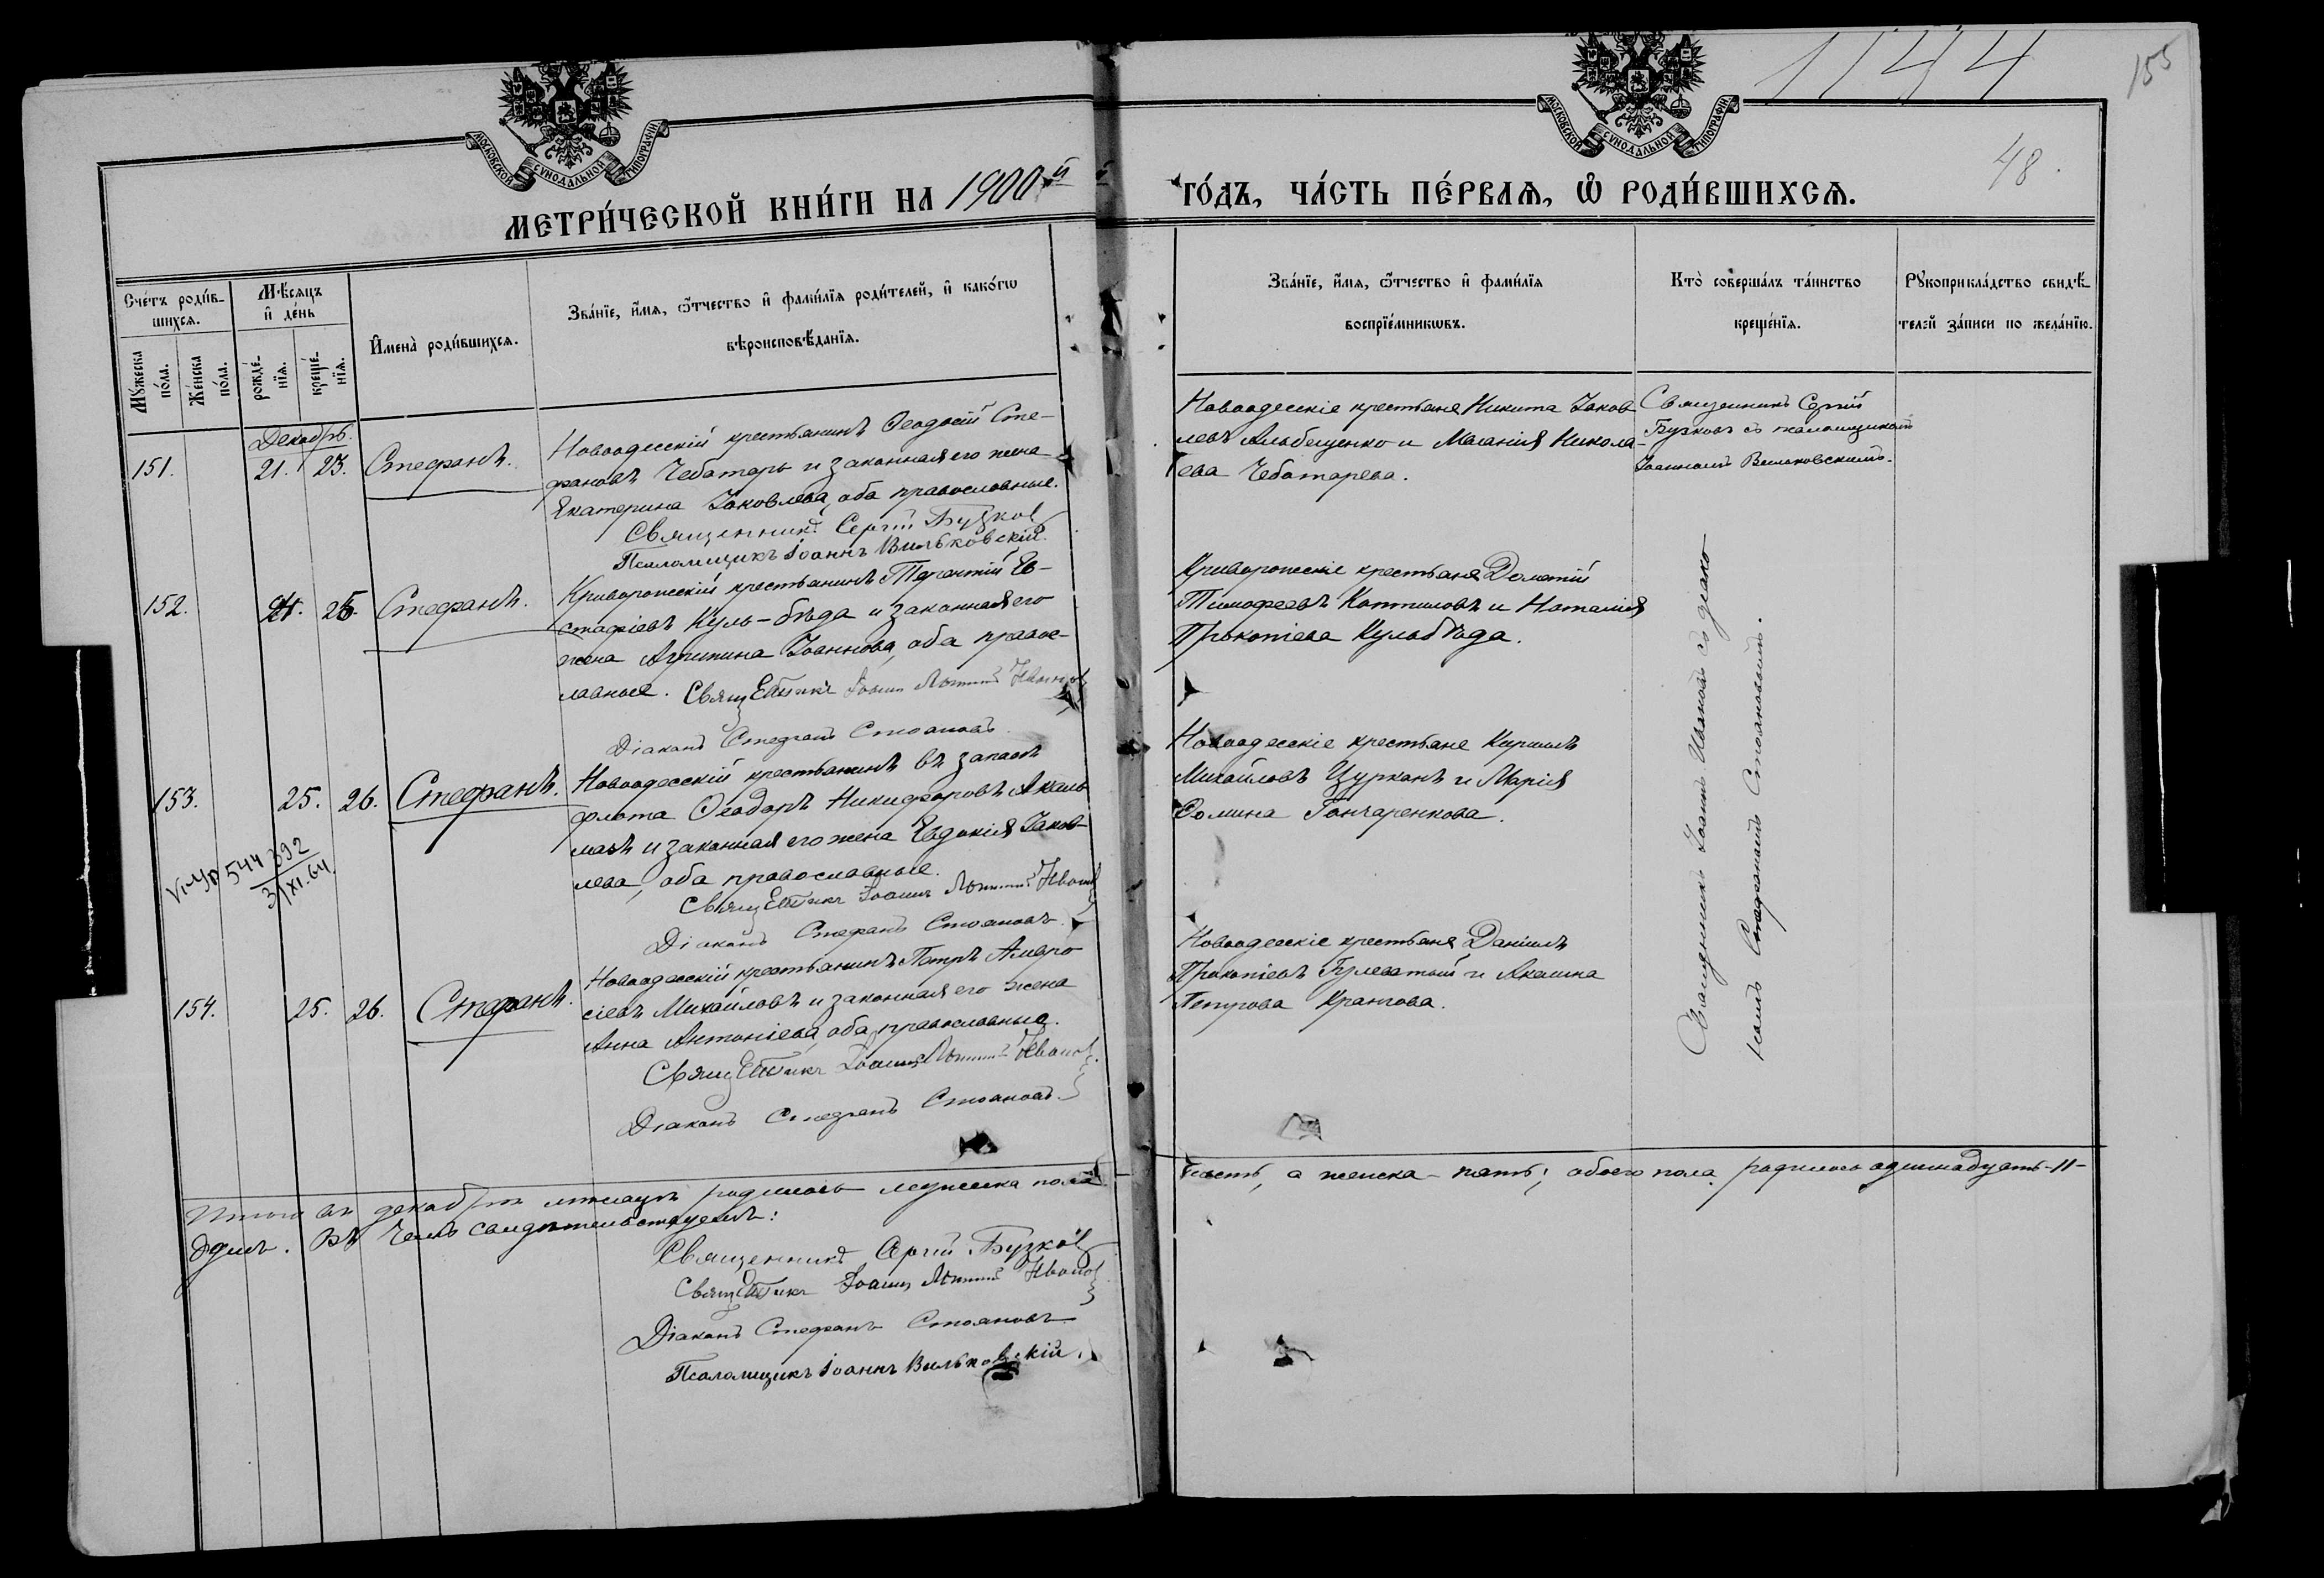 1144
155
48.
МОСКОВСКОЙ СѴНОДАЛЬНОЙ ТИПОГРАФІИ
МОСКОВСКОЙ СѴНОДАЛЬНОЙ ТИПОГРАФІИ
МЕТРИ́ЧЕСКОЙ КНИ́ГИ НА 1900й
ГО́ДЪ, ЧА́СТЬ ПЕ́РВАѦ, Ѽ РОДИ́ВШИХСѦ.
Сче́тъ роди́вшихсѧ.
Мꙋ́жеска по́ла.
Же́нска по́ла.
Мѣ́сѧцъ и҆ де́нь
рожде́нїѧ.
креще́нїѧ.
И҆мена̀ роди́вшихсѧ.
Зва́нїе, и҆́мѧ, ѻ҆́тчество и҆ фами́лїѧ роди́телей, и҆ како́гѡ
вѣроисповѣ́данїѧ.
Зва́нїе, и҆́мѧ, ѻ҆́тчество и҆ фами́лїѧ
воспрїе́мникѡвъ.
Кто̀ соверша́лъ та́инство
креще́нїѧ.
Рꙋкоприкла́дство свидѣ́-
телей за́писи по жела́нїю.
Декабрь.
151.
21. 23.
Стефанъ.
Новоодесскій крестьянинъ Ѳеодосій Сте-
фановъ Чеботарь и законная его жена
Екатерина Іаковлева, оба православные.
Священникъ Сергій Бузков
Псаломщикъ Іоаннъ Вильковскій.
Новоодесскіе крестьяне Никита Іаков
левъ Альбещенко и Меланія Никола-
ева Чеботарева.
Священникъ Сергій
Бузковъ съ псаломщикомъ
Іоанномъ Вильковскимъ.
152.
25.
Стефанъ.
Криворожскій крестьянинъ Терентій Ев-
стафіевъ Куль-бѣда и законная его
жена Агрипина Іоаннова, оба правос-
лавные. Священникъ Іоанн Иванов
Діаконъ Стефанъ Стояновъ
Криворожскіе крестьяне Дометій
Тимофеевъ и Наталія
Прокопіева Кульбѣда.
153.
25. 26.
Стефанъ.
Новоодесскій крестьянинъ въ запасѣ
флота Ѳеодоръ Никифоровъ
и законная его жена Евдокія Іаков-
лева, оба православные.
Священникъ Іоаннъ Иванов
Діаконъ Стефанъ Стояновъ
Новоодесскіе крестьяне Кириллъ
Михайловъ Цурканъ и Марія
Ѳомина Гончаренкова.
544392
31XI.64.
154.
25. 26.
Стефанъ.
Новоодесскій крестьянинъ Петръ Амвро
сіевъ Михайловъ и законная его жена
Анна Антоніева, оба православные.
Священникъ Іоаннъ Иванов
Діаконъ Стефанъ Стояновъ
Новоодесскіе крестьяне Даніилъ
Прокопіевъ и Акилина
Петрова
Священникъ Іоаннъ Ивановъ съ діако-
номъ Стефаномъ Стояновымъ.
Итого въ декабрѣ мѣсяцѣ родилось мужеска пола
шесть, а женска - пять; обоего пола родилось одинадцать -11-
душъ. Въ чемъ свидѣтельствуемъ:
Священникъ Сергій Бузков
Священникъ Іоанн Иванов
Діаконъ Стефанъ Стояновъ
Псаломщикъ Іоаннъ Вильковскій.